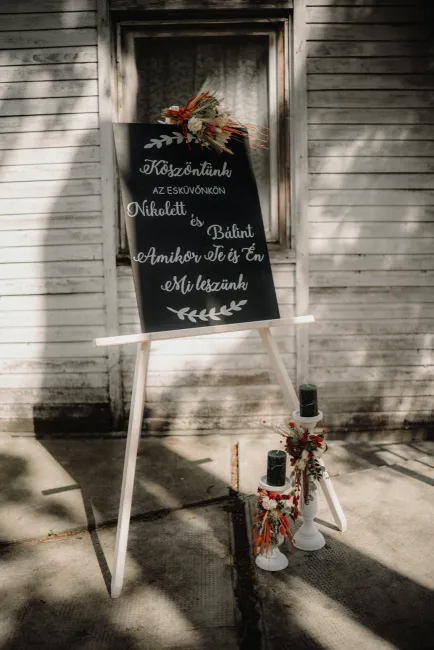 Köszöntünk
AZ ESKÜVŐNKÖN
Nikolett
és
Bálint
Amikor Te és Én
Mi leszünk